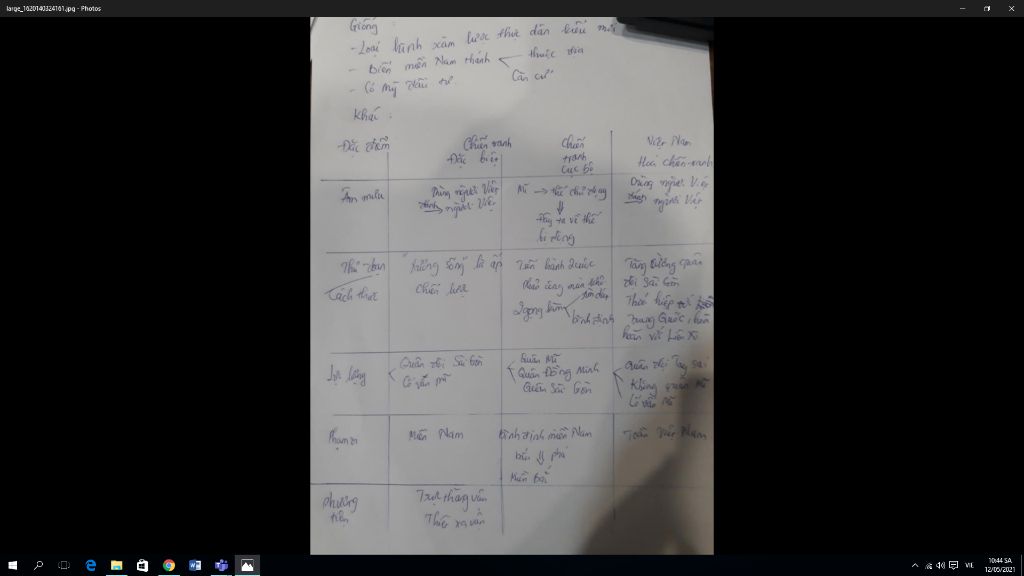 large_1620140324161.jpg - Photos
Giống :
- Loại hình xâm lược thực dân kiểu mới
- Biến miền Nam thành thuộc địa
Căn cứ
- Có Mỹ đầu tư.
Khác :
Đặc điểm
Chiến tranh
Đặc biệt
Chiến
tranh
Cục bộ
Việt Nam
Hoá chiến tranh
Âm mưu
Dùng người Việt
đánh người Việt
Mĩ → thế chủ động
⇓
Đẩy ta về thế
bị động
Dùng người Việt
đánh người Việt
Thủ đoạn
Cách thức
"xương sống" là ấp
chiến lược
Tiến hành 2 cuộc
mùa khô
2 gọng kìm
bình định
Tăng cường quân
đội Sài Gòn
Thoả hiệp với
Trung Quốc, hoà
hoãn với Liên Xô
Lực lượng
Quân đội Sài Gòn
Cố vấn Mĩ
Quân Mĩ
Quân Đồng Minh
Quân Sài Gòn
Quân đội tay sai
Không quân Mĩ
Cố vấn Mĩ
Phạm vi
Miền Nam
Bình định miền Nam
bắn ⇓ phá
Miền Bắc
Toàn Việt Nam
phương
tiện
Trực thăng vận
Thiết xa vận
VIE
10:44 SA
12/05/2021